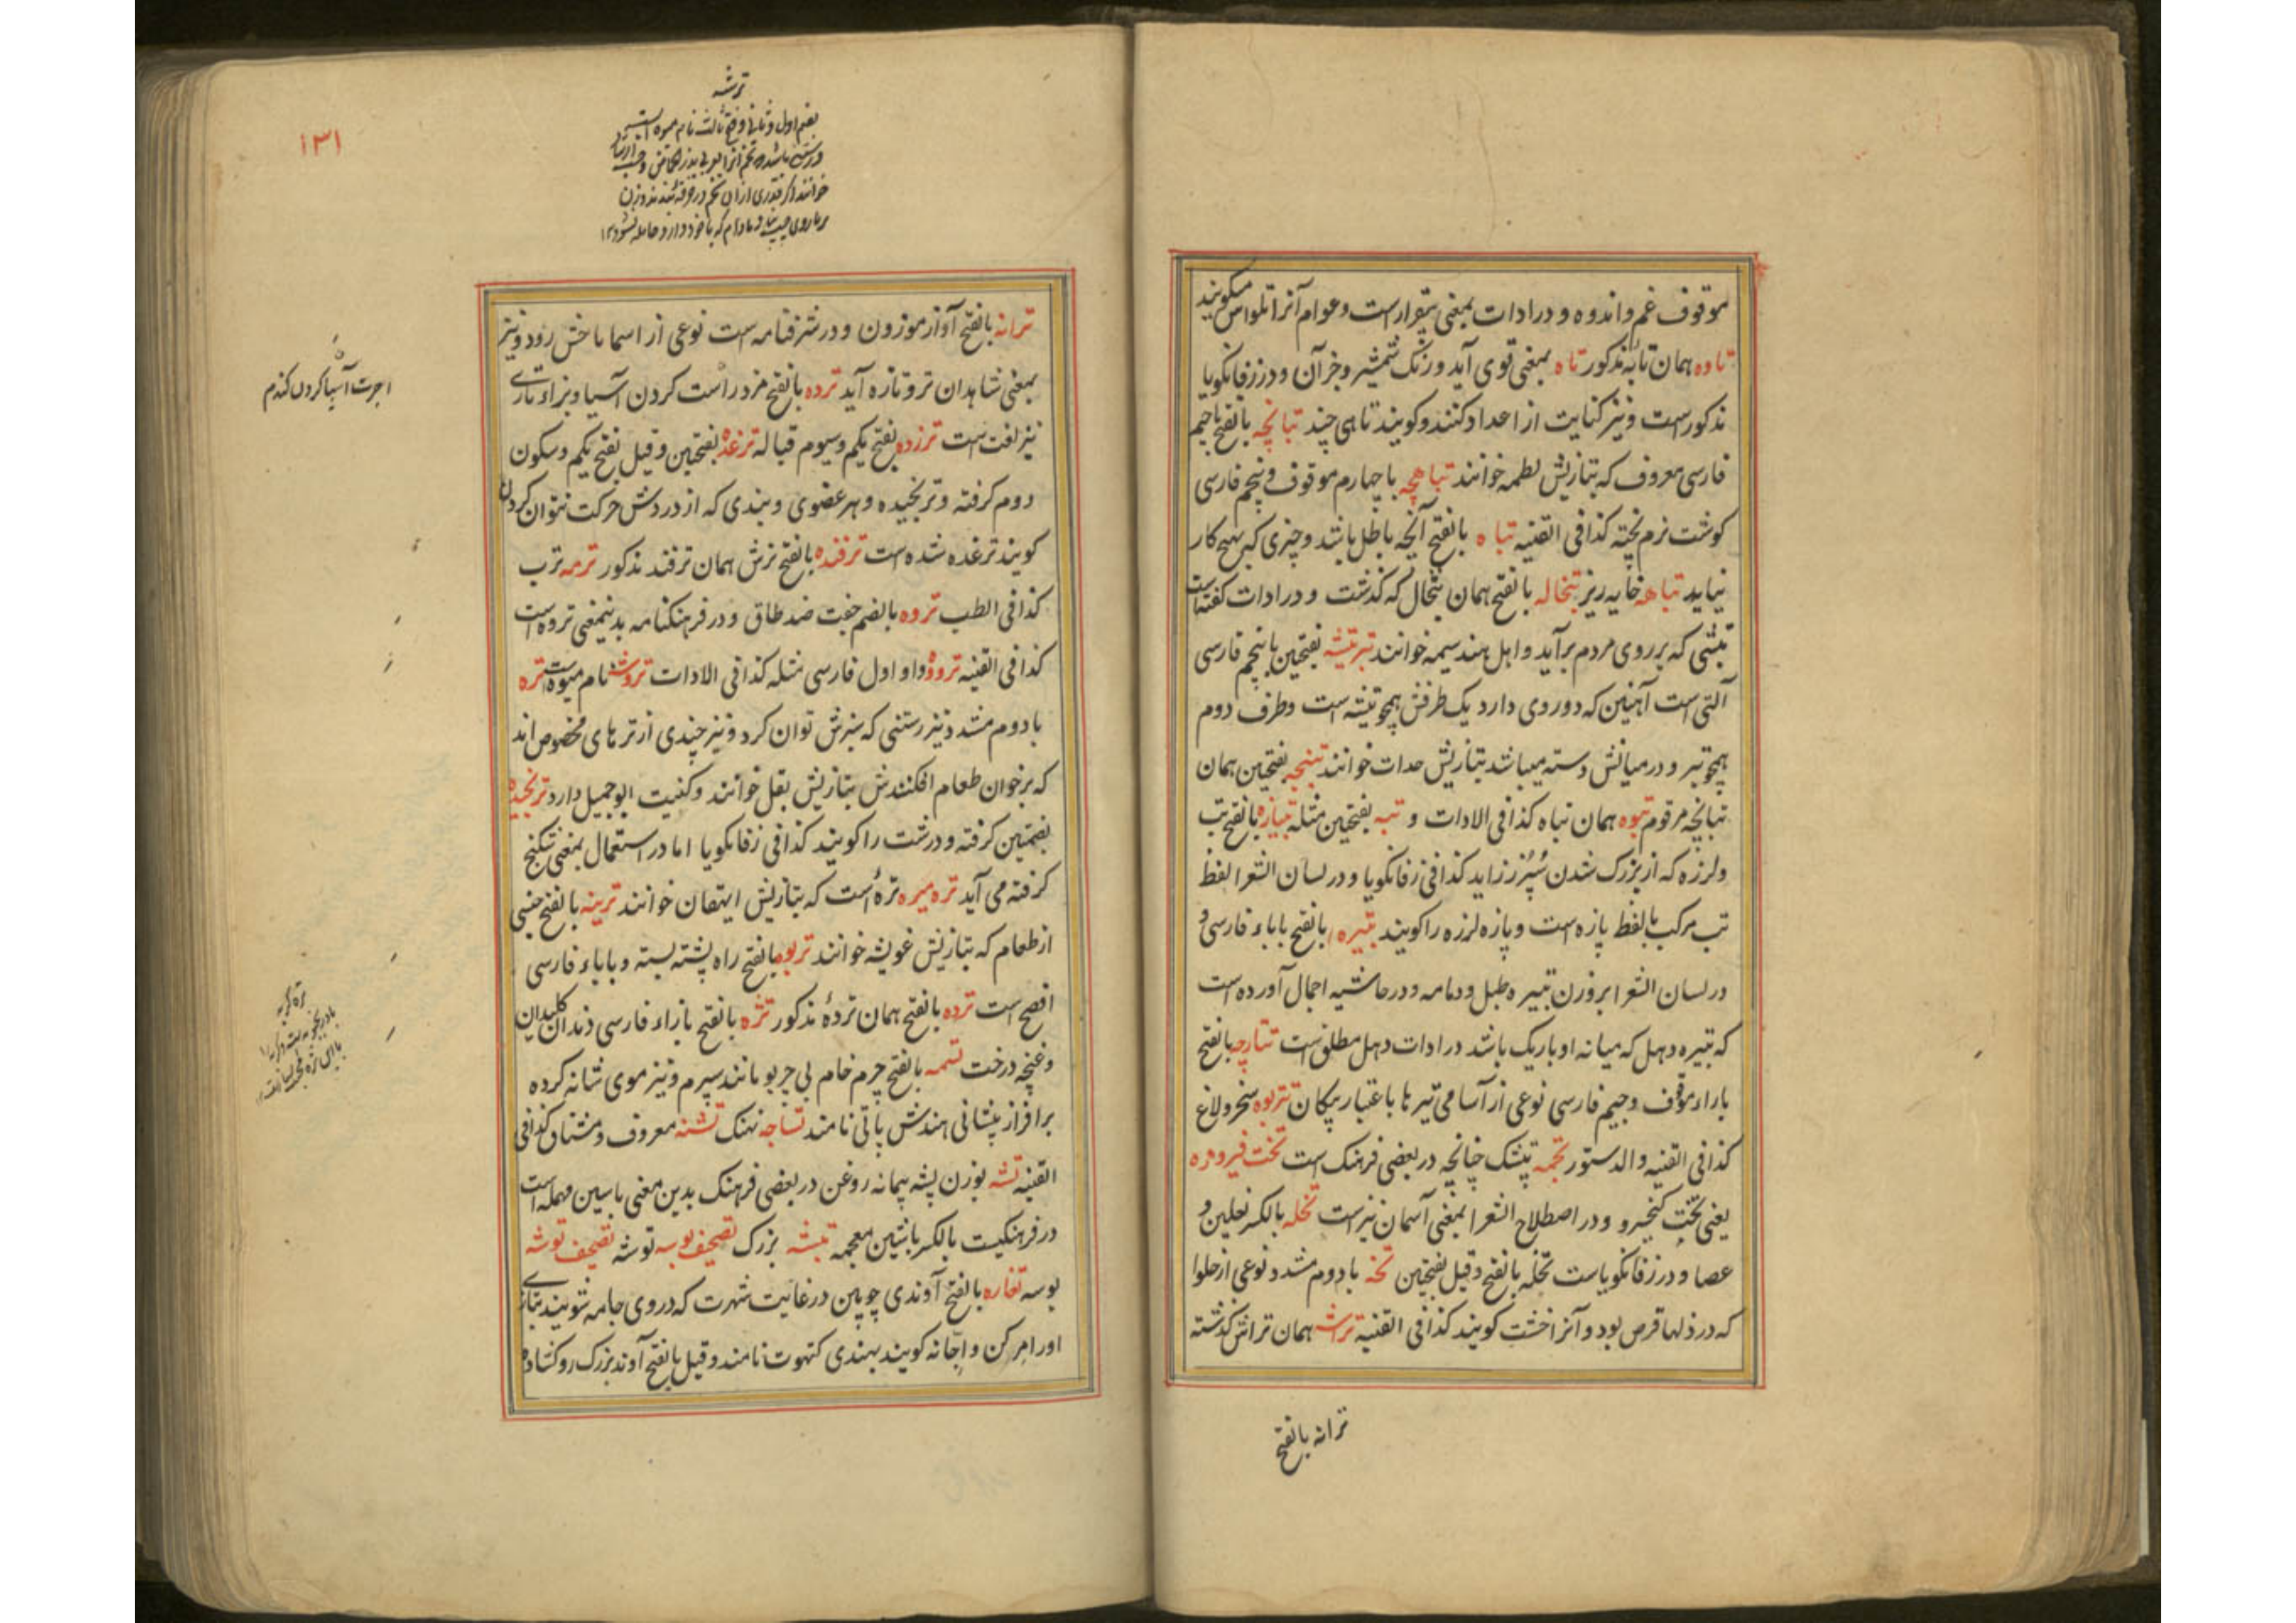 موقوف غم و اندوه و در ادات بمعنی بیقرار است و عوام آنرا تلواس میگویند
تاوه همان تابه مذکور تاه بمعنی توی آید و زنک شمشیر و جز آن و در زفانکویا
مذکور است و نیز کنایت از اعداد کنند و کویند تاهی چند تبانچه بالفتح با جیم
فارسی معروف که بتازیش لطمه خوانند تباهچه با چهارم موقوف و پنجم فارسی
کوشت نرم پخته کذا فی القنیه تباه بالفتح آنچه باطل باشد و چیزی که بهیچ کار
نیاید تباهه خایه ریز تبخاله بالفتح همان تبخال که کذشت و در ادات کفته است
تبشی که بر روی مردم برآید و اهل هند سیمه خوانند تبر تیشه بفتحین با پنجم فارسی
آلتی است آهنین که دو روی دارد یک طرفش همچو تیشه است و طرف دوم
همچو تبر و در میانش دسته میباشد بتازیش حدات خوانند تبنچه بفتحین همان
تبانچه مرقوم تبوه همان تباه کذا فی الادات و تبه بفتحین مثله تبیازه بالفتح تب
و لرزه که از بزرک شدن سپرز زاید کذا فی زفانکویا و در لسان الشعرا لفظ
تب مرکب بالفظ یازه است و یازه لرزه را کویند تبیره بالفتح با باء فارسی و
در لسان الشعرا بر وزن تبیره طبل و دمامه و در حاشیه اجمال آورده است
که تبیره دهل که میانه او باریک باشد در ادات دهل مطلق است تتارچه بالفتح
باراء موقوف و جیم فارسی نوعی از آسامی تیرها باعتبار پیکان تتربوه سخر و لاغ
کذا فی القنیه والدستور تجمه تپنتک چنانچه در بعضی فرهنک است تخت فیروزه
یعنی تخت کیخسرو و در اصطلاح الشعرا بمعنی آسمان نیز است تخله بالکسر نعلین و
عصا و در زفانکویاست تخله بالفتح و قیل بفتحین تخه با دوم مشدد نوعی از حلوا
که در دلها قرص بود و آنرا خشت کویند کذا فی القنیه تراشه همان تراش کذشته
ترانه بالفتح
۱۳۱
ترشه
بضم اول و ثانی و فتح ثالث نام میوه است
خوانند اکر قدری ازان تخم در خرقه بندند و زن
بر بازوی چپ بندد مادام که با خود دارد حامله نشود ۱۲
ترانه بالفتح آواز موزون و در شرفنامه است نوعی از اسما باخش رود و نیز
بمعنی شاهدان تر و تازه آید ترده بالفتح مزد راست کردن آسیا و بزاء تازی
نیز لغت است ترزده بفتح یکم و سیوم قباله ترغده بفتحین و قیل بفتح یکم و سکون
دوم کرفته و ترنجیده و هر عضوی و بندی که از دردش حرکت نتوان کردن
کویند ترغده شده است ترفنده بالفتح ترش همان ترفند مذکور ترمه ترب
کذا فی الطب تروه بالضم جفت ضد طاق و در فرهنکنامه بدینمعنی تروه است
کذا فی القنیه تروؤه واو اول فارسی مثله کذا فی الادات تروشه نام میوه است تره
با دوم مشدد نیز رستنی که سبزش توان کرد و نیز چندی از ترهای مخصوص اند
که بر خوان طعام افکنندش بتازیش بقل خوانند و کنیت ابو جمیل دارد ترنجیده
بضمتین کرفته و درشت را کویند کذا فی زفانکویا اما در استعمال بمعنی شکنج
کرفته می آید تره میره ترهٔ است که بتازیش ایهقان خوانند ترینه بالفتح جنسی
از طعام که بتازیش غویثه خوانند تربوه بالفتح راه پشته بسته و با باء فارسی
افصح است ترده بالفتح همان تردهٔ مذکور تژه بالفتح بازاء فارسی دندان کلیدان
و غنچه درخت تسمه بالفتح چرم خام بی چربو مانند سپرم و نیز موی شانه کرده
بر افراز پیشانی هندش پاتی نامند تساجه نهنک تشنه معروف و مشتاق کذا فی
القنیه تشه بوزن پشه پیمانه روغن در بعضی فرهنک بدین معنی با سین مهمله است
در فرهنکیست بالکسر باشین معجمه تبشه بزرک تصحیف بوسه توشه تصحیف توشه
بوسه تغاره بالفتح آوندی چوبین در غایت شهرت که در وی جامه شویند بتازی
اورا مرکن و اجانه کویند بهندی کتهوت نامند و قیل بالفتح آوند بزرک رو کشاده
اجرت آسیا کردن کندم
تره کربه